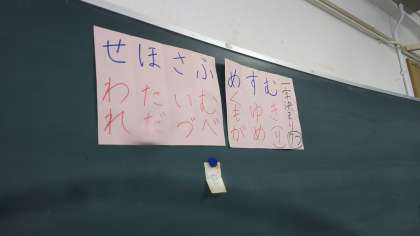 一字決まり
むきり
すゆめ
めくもが
ふむべ
さいづ
ほただ
せわれ